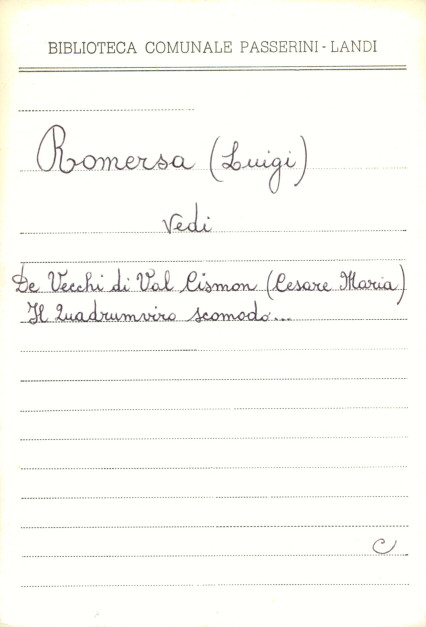 BIBLIOTECA COMUNALE PASSERINI - LANDI
Romersa (Luigi)
Vedi
De Vecchi di Val Cismon (Cesare Maria)
Il Quadrumviro scomodo...
C